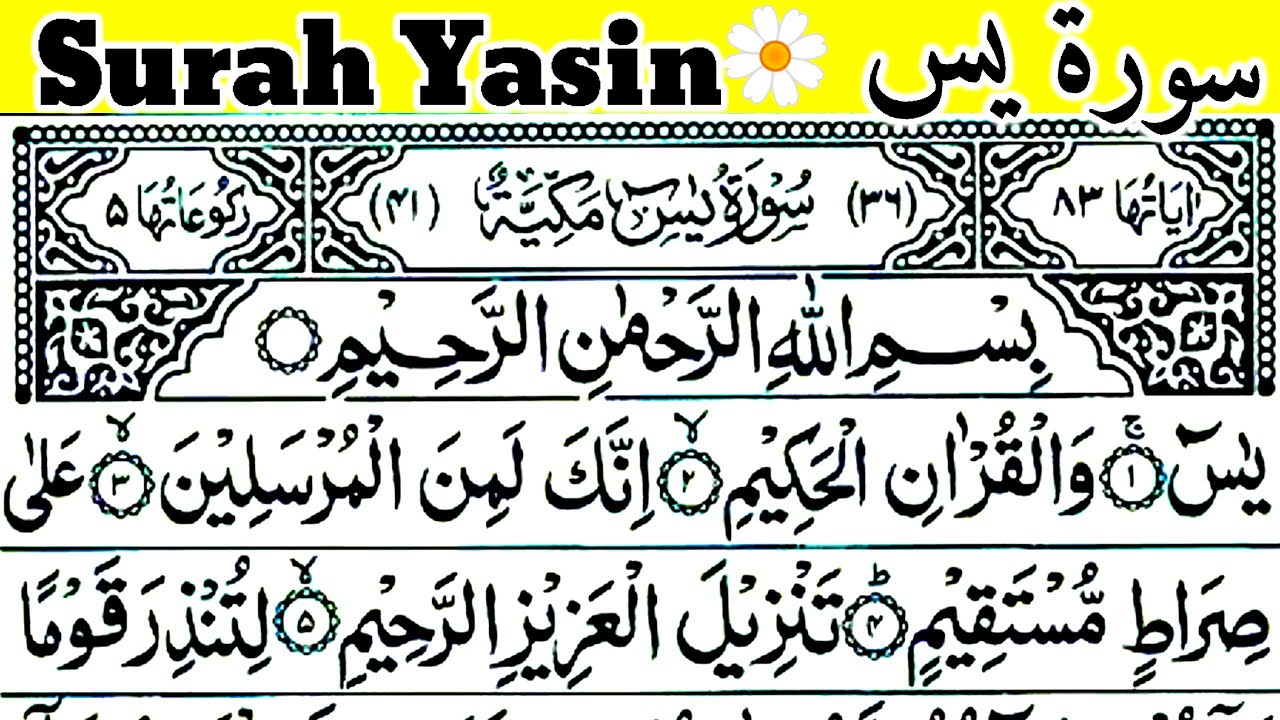 Surah Yasin سورة يس
اٰيَاتُهَا ٨٣ (٣٦) سُوْرَةُ يٰسٓ مَكِّيَّةٌ (٤١) رُكُوْعَاتُهَا ٥
بِسْمِ اللّٰهِ الرَّحْمٰنِ الرَّحِيْمِ
يٰسٓ ۚ ١ وَالْقُرْاٰنِ الْحَكِيْمِ ۙ ٢ اِنَّكَ لَمِنَ الْمُرْسَلِيْنَ ۙ ٣ عَلٰى
صِرَاطٍ مُّسْتَقِيْمٍ ؕ ٤ تَنْزِيْلَ الْعَزِيْزِ الرَّحِيْمِ ۙ ٥ لِتُنْذِرَ قَوْمًا